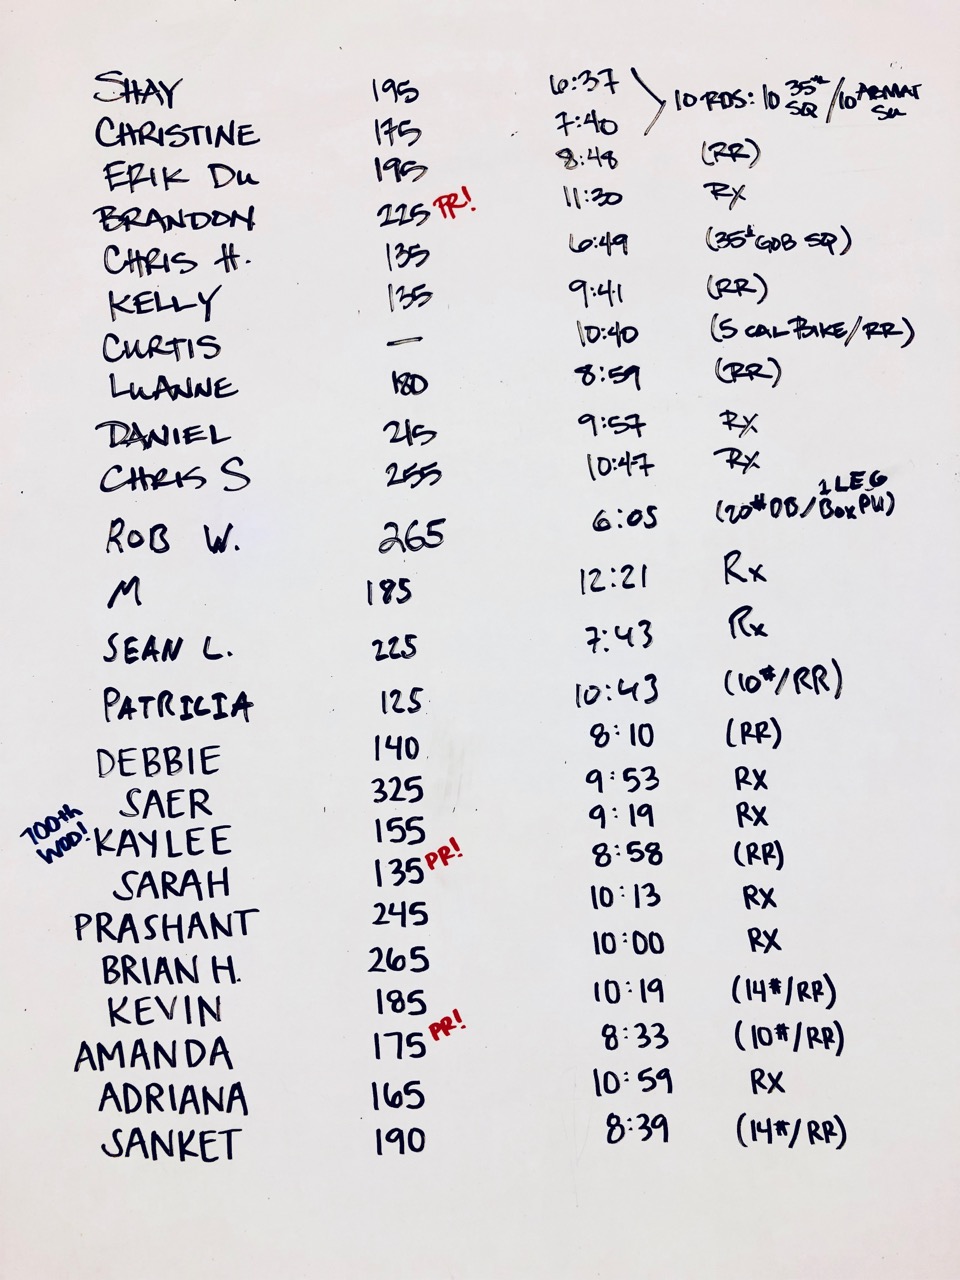 SHAY 195 6:37 10 RDS: 10 35# SQ / 10 ABMAT SU
CHRISTINE 175 7:40
ERIK DU 195 8:48 (RR)
BRANDON 225 PR! 11:30 RX
CHRIS H. 135 6:49 (35# GOB SQ)
KELLY 135 9:41 (RR)
CURTIS — 10:40 (5 CAL BIKE/RR)
LUANNE 180 8:59 (RR)
DANIEL 215 9:57 RX
CHRIS S 255 10:47 RX
ROB W. 265 6:05 (20# DB/1 LEG BOX PU)
M 185 12:21 Rx
SEAN L. 225 7:43 Rx
PATRICIA 125 10:43 (10#/RR)
DEBBIE 140 8:10 (RR)
SAER 325 9:53 RX
700th WOD! KAYLEE 155 9:19 RX
SARAH 135 PR! 8:58 (RR)
PRASHANT 245 10:13 RX
BRIAN H. 265 10:00 RX
KEVIN 185 10:19 (14#/RR)
AMANDA 175 PR! 8:33 (10#/RR)
ADRIANA 165 10:59 RX
SANKET 190 8:39 (14#/RR)